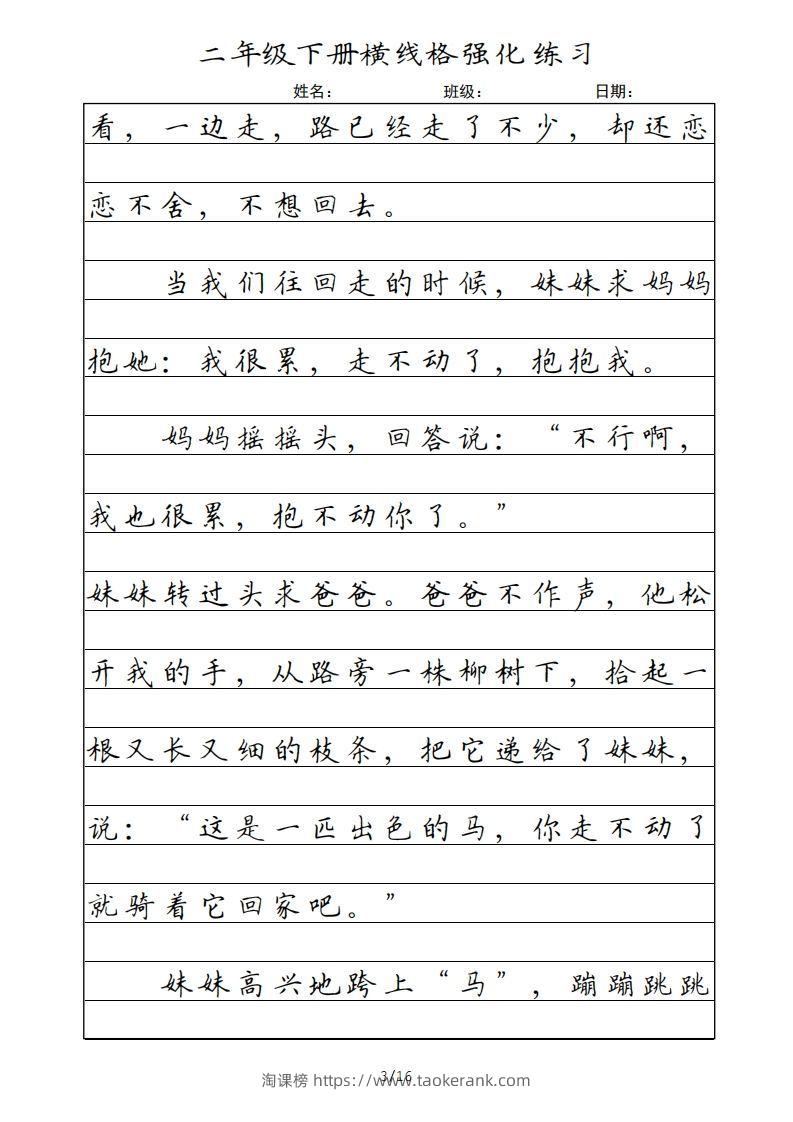 二年级下册横线格强化练习
姓名： 班级： 日期：
看，一边走，路已经走了不少，却还恋
恋不舍，不想回去。
当我们往回走的时候，妹妹求妈妈
抱她：我很累，走不动了，抱抱我。
妈妈摇摇头，回答说：“不行啊，
我也很累，抱不动你了。”
妹妹转过头求爸爸。爸爸不作声，他松
开我的手，从路旁一株柳树下，拾起一
根又长又细的枝条，把它递给了妹妹，
说：“这是一匹出色的马，你走不动了
就骑着它回家吧。”
妹妹高兴地跨上“马”，蹦蹦跳跳
3/16
淘课榜 https://www.taokerank.com